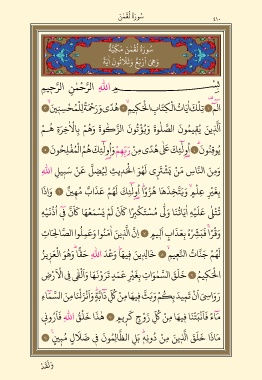 سُورَةُ لُقْمٰنَ ٤١٠
سُورَةُ لُقْمٰنَ مَكِّيَّةٌ
وَهِيَ اَرْبَعٌ وَثَلَاثُونَ اٰيَةً
بِسْمِ اللّٰهِ الرَّحْمٰنِ الرَّحِيمِ
الٓمٓ ۞ تِلْكَ اٰيَاتُ الْكِتَابِ الْحَكِيمِ ۞ هُدًى وَرَحْمَةً لِلْمُحْسِنِينَ ۞
اَلَّذِينَ يُقِيمُونَ الصَّلٰوةَ وَيُؤْتُونَ الزَّكٰوةَ وَهُمْ بِالْاٰخِرَةِ هُمْ
يُوقِنُونَ ۞ اُو۬لٰٓئِكَ عَلٰى هُدًى مِنْ رَبِّهِمْ وَاُو۬لٰٓئِكَ هُمُ الْمُفْلِحُونَ ۞
وَمِنَ النَّاسِ مَنْ يَشْتَر۪ي لَهْوَ الْحَد۪يثِ لِيُضِلَّ عَنْ سَب۪يلِ اللّٰهِ
بِغَيْرِ عِلْمٍ وَيَتَّخِذَهَا هُزُوًا اُو۬لٰٓئِكَ لَهُمْ عَذَابٌ مُه۪ينٌ ۞ وَاِذَا
تُتْلٰى عَلَيْهِ اٰيَاتُنَا وَلّٰى مُسْتَكْبِرًا كَاَنْ لَمْ يَسْمَعْهَا كَاَنَّ ف۪ٓي اُذُنَيْهِ
وَقْرًا فَبَشِّرْهُ بِعَذَابٍ اَل۪يمٍ ۞ اِنَّ الَّذ۪ينَ اٰمَنُوا وَعَمِلُوا الصَّالِحَاتِ
لَهُمْ جَنَّاتُ النَّع۪يمِ ۞ خَالِد۪ينَ ف۪يهَا وَعْدَ اللّٰهِ حَقًّا وَهُوَ الْعَز۪يزُ
الْحَك۪يمُ ۞ خَلَقَ السَّمٰوَاتِ بِغَيْرِ عَمَدٍ تَرَوْنَهَا وَاَلْقٰى فِي الْاَرْضِ
رَوَاسِيَ اَنْ تَم۪يدَ بِكُمْ وَبَثَّ ف۪يهَا مِنْ كُلِّ دَٓابَّةٍ وَاَنْزَلْنَا مِنَ السَّمَٓاءِ
مَٓاءً فَاَنْبَتْنَا ف۪يهَا مِنْ كُلِّ زَوْجٍ كَر۪يمٍ ۞ هٰذَا خَلْقُ اللّٰهِ فَاَرُون۪ي
مَاذَا خَلَقَ الَّذ۪ينَ مِنْ دُونِه۪ بَلِ الظَّالِمُونَ ف۪ي ضَلَالٍ مُب۪ينٍ ۞
وَلَقَدْ